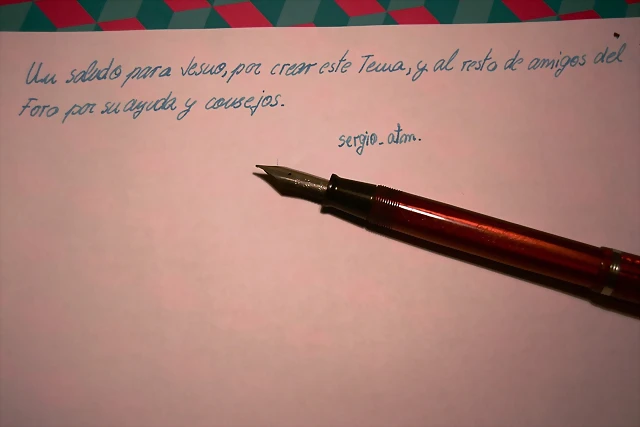 Un saludo para Jesuo, por crear este Tema, y al resto de amigos del
Foro por su ayuda y consejos.
sergio_atm.